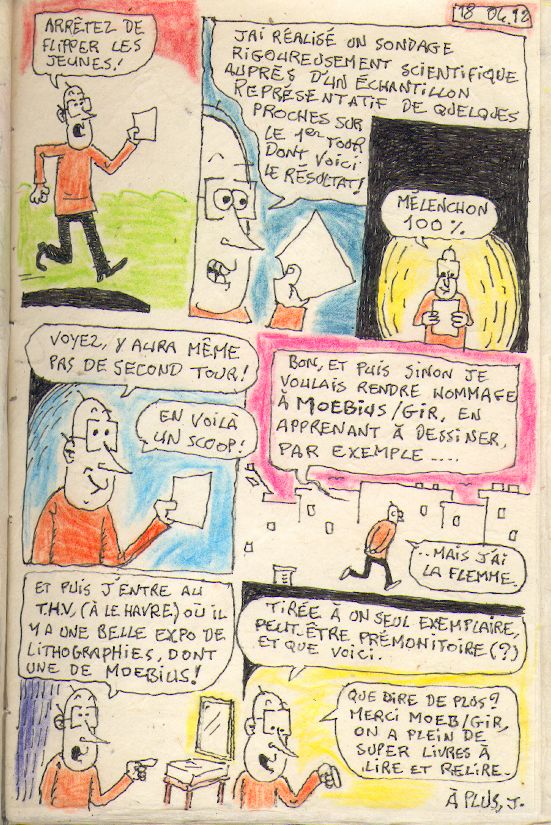 18 04.12
ARRÊTEZ DE
FLIPPER LES
JEUNES!
J'AI RÉALISÉ UN SONDAGE
RIGOUREUSEMENT SCIENTIFIQUE
AUPRÈS D'UN ÉCHANTILLON
REPRÉSENTATIF DE QUELQUES
PROCHES SUR
LE 1er TOUR
DONT VOICI
LE RÉSULTAT!
MÉLENCHON
100%
VOYEZ, Y AURA MÊME
PAS DE SECOND TOUR!
EN VOILÀ
UN SCOOP!
BON, ET PUIS SINON JE
VOULAIS RENDRE HOMMAGE
À MOEBIUS/GIR, EN
APPRENANT À DESSINER,
PAR EXEMPLE.....
..MAIS J'AI
LA FLEMME.
ET PUIS J'ENTRE AU
T.H.V. (À LE HAVRE) OÙ IL
Y A UNE BELLE EXPO DE
LITHOGRAPHIES, DONT
UNE DE MOEBIUS!
TIRÉE À UN SEUL EXEMPLAIRE,
PEUT-ÊTRE PRÉMONITOIRE (?)
ET QUE VOICI..
QUE DIRE DE PLUS?
MERCI MOEB/GIR,
ON A PLEIN DE
SUPER LIVRES À
LIRE ET RELIRE.
À PLUS, J.